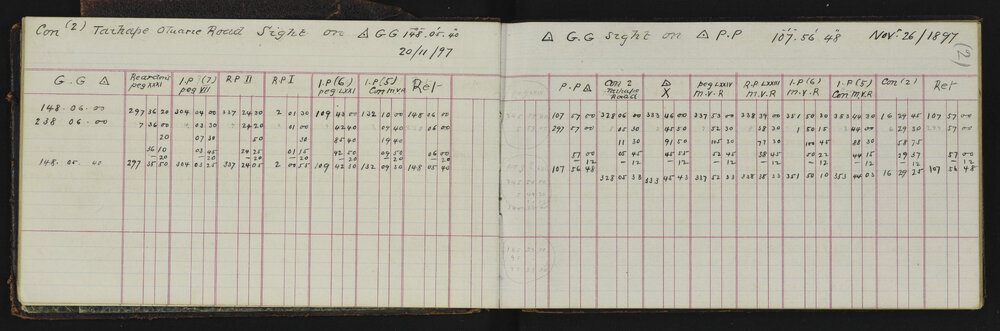 Con (2) Taihape Otuarie Road Sight on △ G G 148. 05. 40
20/11/97
G. G △ Reardons peg XXXI I.P (7) peg VII R P II R P I I.P (6) peg LXXI I.P (5) Con M.V.R Ref
148. 06. 00 297 36 20 304 04 00 337 24 30 2 01 30 109 43 00 132 10 00 148 06 00
238 06. 00 7 36 00 03 30 24 20 01 00 42 40 09 40 06 00
20 07 30 50 30 85 40 19 40
36 10 03 45 24 25 01 15 42 50 09 50 06 00
-20 -20 -20 -20 -20 -20 -20
148. 05. 40 297 35 50 304 03 25 337 24 05 2 00 55 109 42 30 132 09 30 148 05 40
△ G. G Sight on △ P. P 107. 56 48 Nov: 26/1897
(2)
P. P △ Con 2 Taihape Road △ X peg LXXIV M. V. R R.P LXXIII M. V. R I. P (6) M. V. R I. P (5) Con M.V.R Con (2) Ref
107 57 00 328 06 00 333 46 00 337 53 00 338 39 00 351 50 30 353 44 30 16 29 45 107 57 00
297 57 00 05 30 45 50 52 30 38 30 50 15 44 00 29 30 57 00
11 30 91 50 105 30 77 30 100 45 88 30 58 75
57 00 05 45 45 55 52 45 38 45 50 22 44 15 29 37 57 00
-12 -12 -12 -12 -12 -12 -12 -12 -12
107 56 48 328 05 33 333 45 43 337 52 33 338 38 33 351 50 10 353 44 03 16 29 25 107 56 48